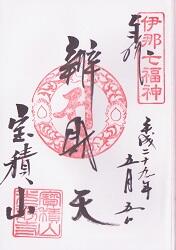 伊那七福神
奉拝
平成二十九年
五月五日
辨財天
宝積山